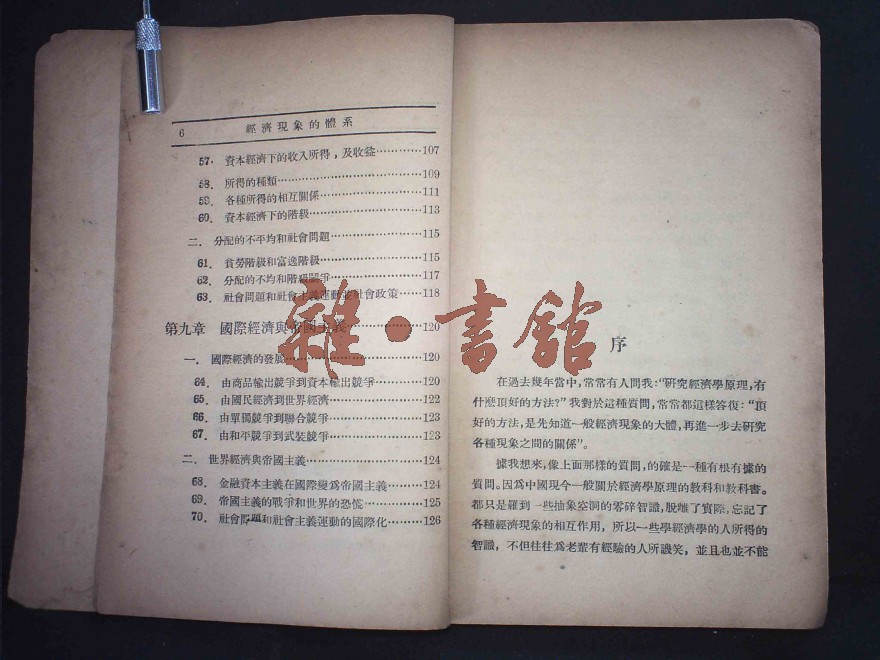 6 經濟現象的體系
57. 資本經濟下的收入所得，及收益…………107
58. 所得的種類…………109
59. 各種所得的相互關係…………111
60. 資本經濟下的階級…………113
二. 分配的不平均和社會問題…………115
61. 貧勞階級和富逸階級…………115
62. 分配的不均和階級鬪爭…………117
63. 社會問題和社會主義運動並社會政策……118
第九章 國際經濟與帝國主義…………120
一. 國際經濟的發展…………120
64. 由商品輸出競爭到資本輸出競爭…………120
65. 由國民經濟到世界經濟…………122
66. 由單獨競爭到聯合競爭…………123
67. 由和平競爭到武裝競爭…………123
二. 世界經濟與帝國主義…………124
68. 金融資本主義在國際變爲帝國主義………124
69. 帝國主義的戰爭和世界的恐慌…………125
70. 社會問題和社會主義運動的國際化………126
雜·書舘
序
在過去幾年當中，常常有人問我：“研究經濟學原理，有
什麼頂好的方法？”我對於這種質問，常常都這樣答復：“頂
好的方法，是先知道一般經濟現象的大體，再進一步去研究
各種現象之間的關係”。
據我想來，像上面那樣的質問，的確是一種有根有據的
質問。因爲中國現今一般關於經濟學原理的教科和教科書。
都只是羅列一些抽象空洞的零碎智識，脫離了實際，忘記了
各種經濟現象的相互作用，所以一些學經濟學的人所得的
智識，不但往往爲老輩有經驗的人所譏笑，並且也並不能